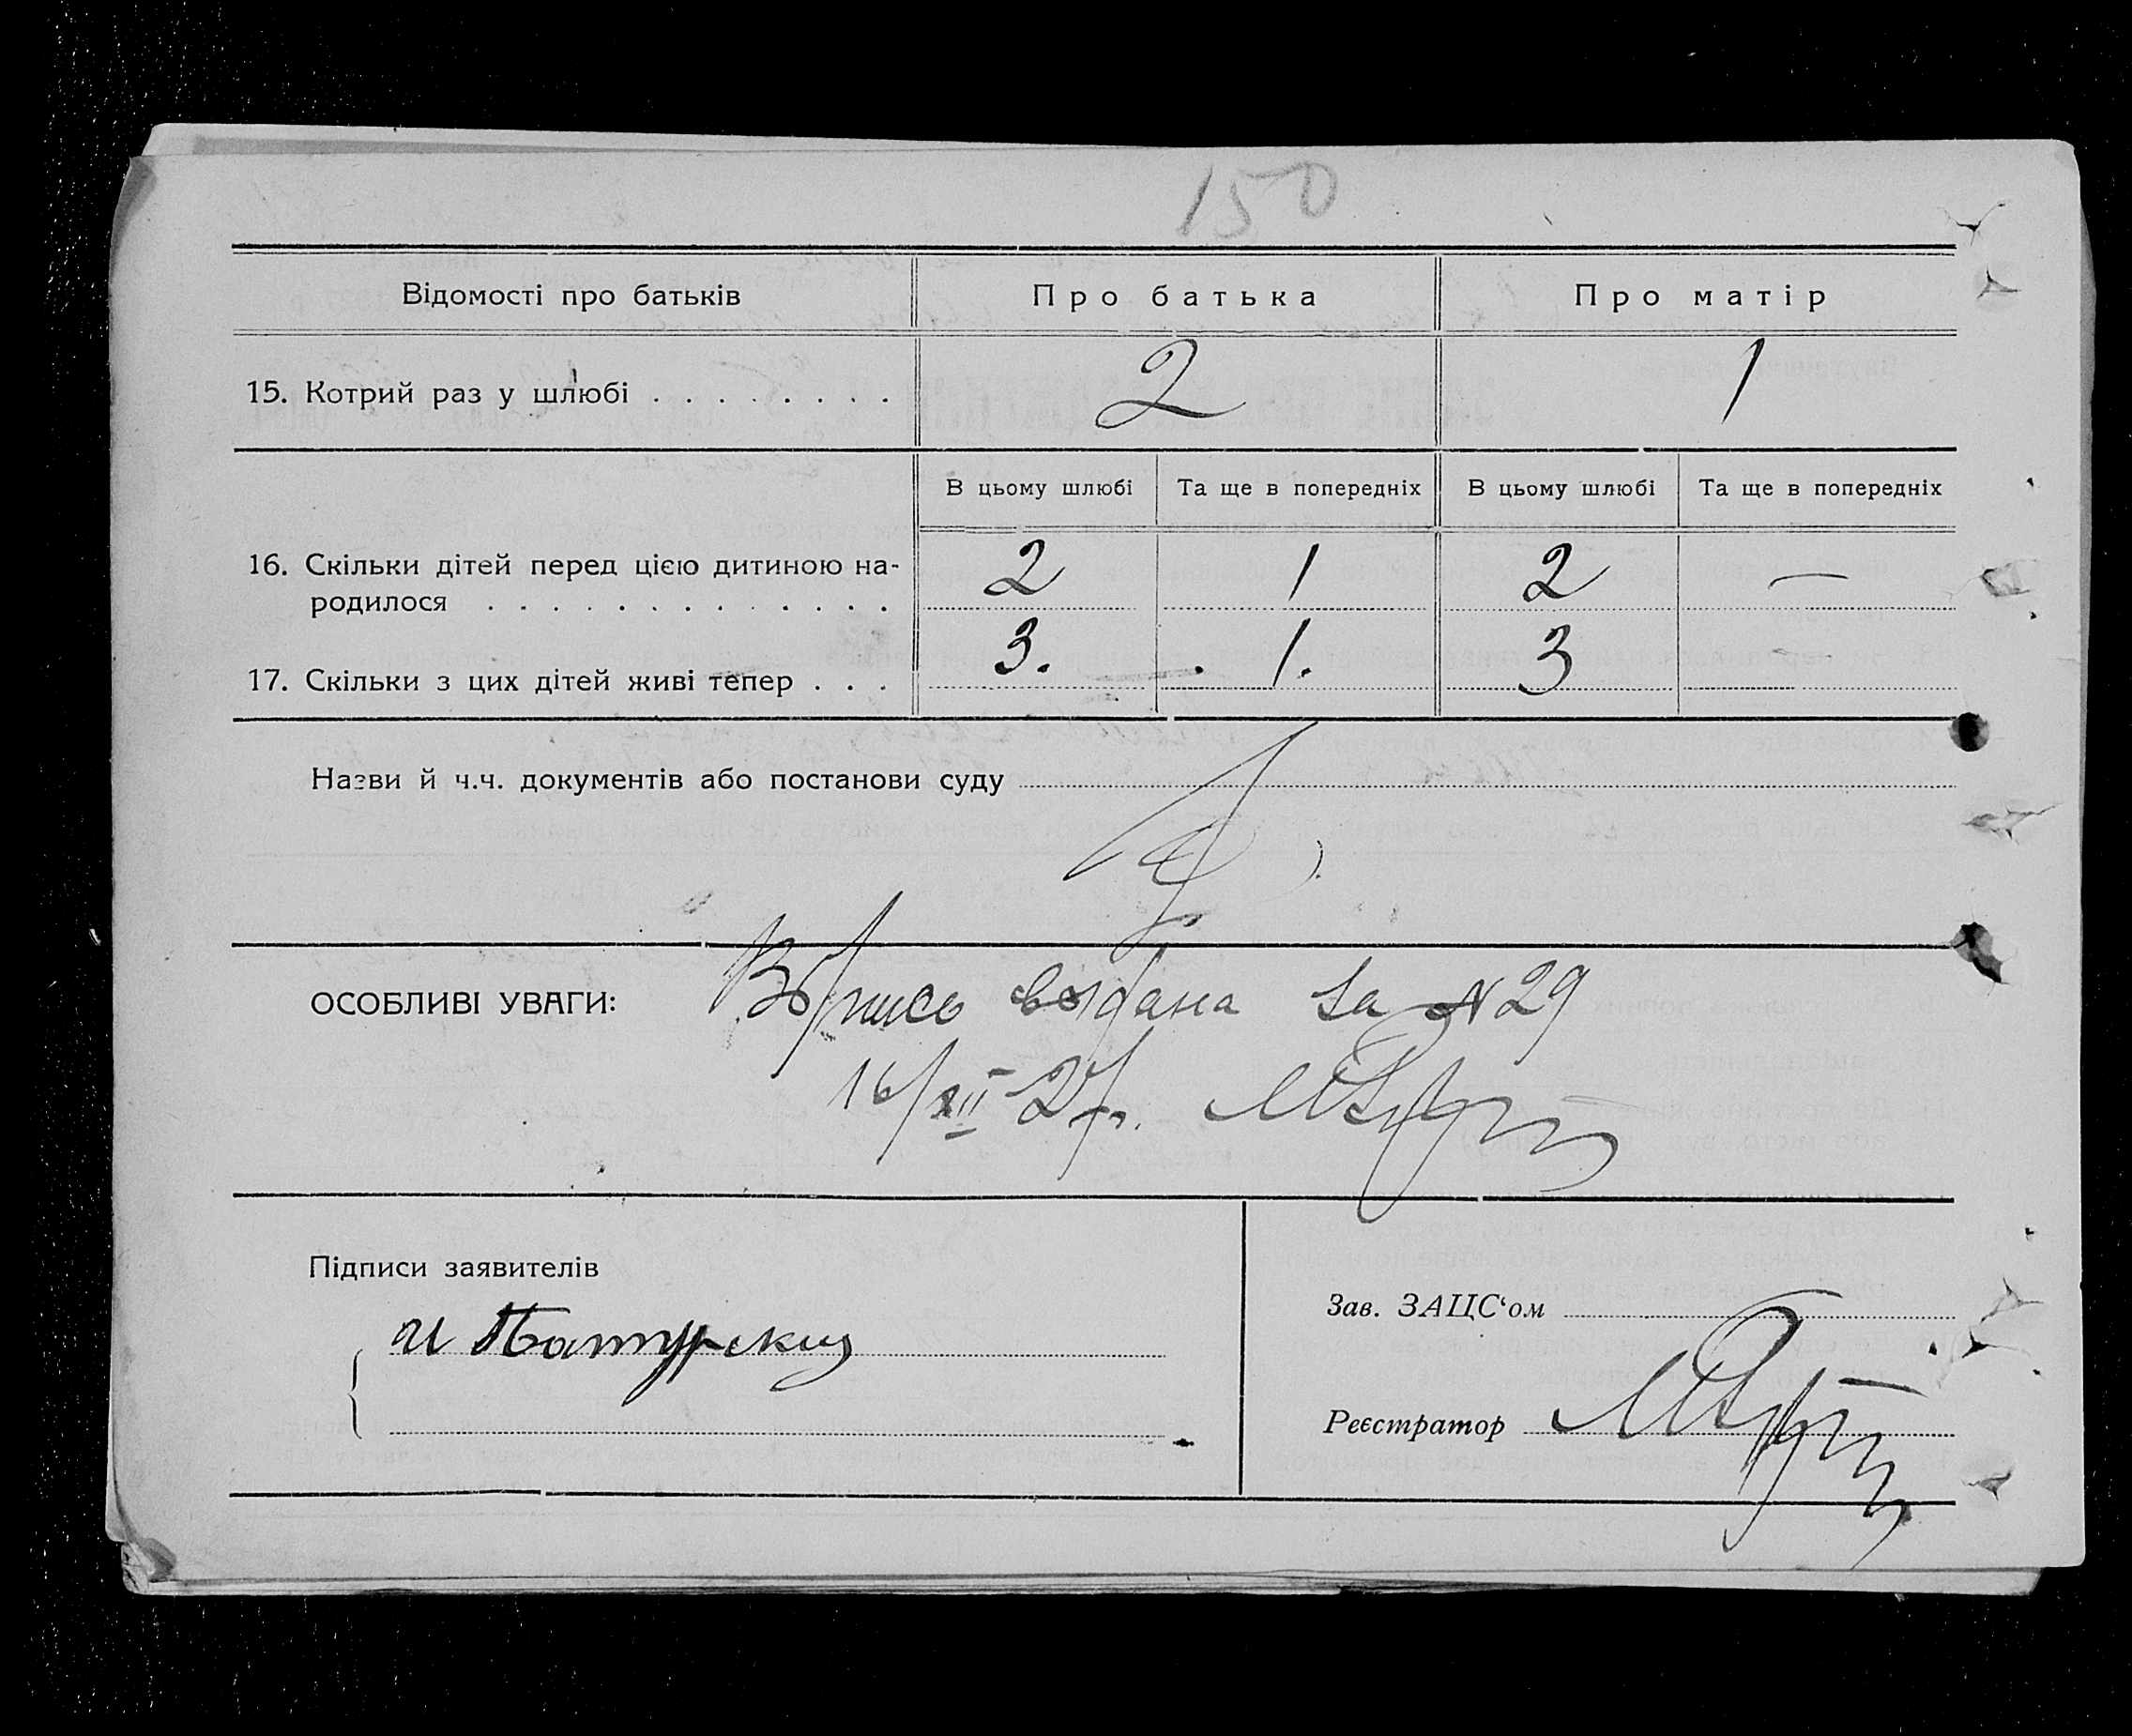 150
Відомості про батьків Про батька Про матір
15. Котрий раз у шлюбі . . . . . . . . 2 1
В цьому шлюбі Та ще в попередніх В цьому шлюбі Та ще в попередніх
16. Скільки дітей перед цією дитиною на-
родилося . . . . . . . . . . . . . 2 1 2 —
17. Скільки з цих дітей живі тепер . . . 3. 1. 3
Назви й ч.ч. документів або постанови суду
ОСОБЛИВІ УВАГИ: выдана за №29
16/XII-27р.
Підписи заявителів
Зав. ЗАЦС‘ом
Реєстратор